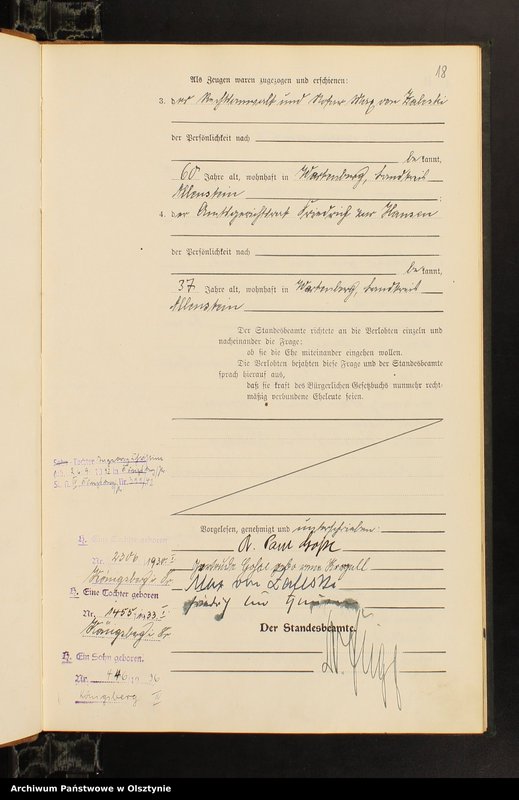 18
Als Zeugen waren zugezogen und erschienen:
3. der Rechtsanwalt und Notar Max von Zaleski
der Persönlichkeit nach
bekannt,
60 Jahre alt, wohnhaft in Wartenburg, Landkreis
Allenstein
4. der Amtsgerichtsrat Friedrich zur Hausen
der Persönlichkeit nach
bekannt,
37 Jahre alt, wohnhaft in Wartenburg, Landkreis
Allenstein
Der Standesbeamte richtete an die Verlobten einzeln und
nacheinander die Frage:
ob sie die Ehe miteinander eingehen wollen.
Die Verlobten bejahten diese Frage und der Standesbeamte
sprach hierauf aus,
daß sie kraft des Bürgerlichen Gesetzbuchs nunmehr recht-
mäßig verbundene Eheleute seien.
Tochter
Vorgelesen, genehmigt und unterschrieben:
Paul
H. Eine Tochter geboren
Nr. 2306 1930 I
Königsberg i. Pr.
geborene
Max von Zaleski
H. Eine Tochter geboren
Nr. 1455 1933 I
Königsberg i Pr
Der Standesbeamte.
H. Ein Sohn geboren.
Nr. 446 1936
Königsberg II
Archiwum Państwowe w Olsztynie